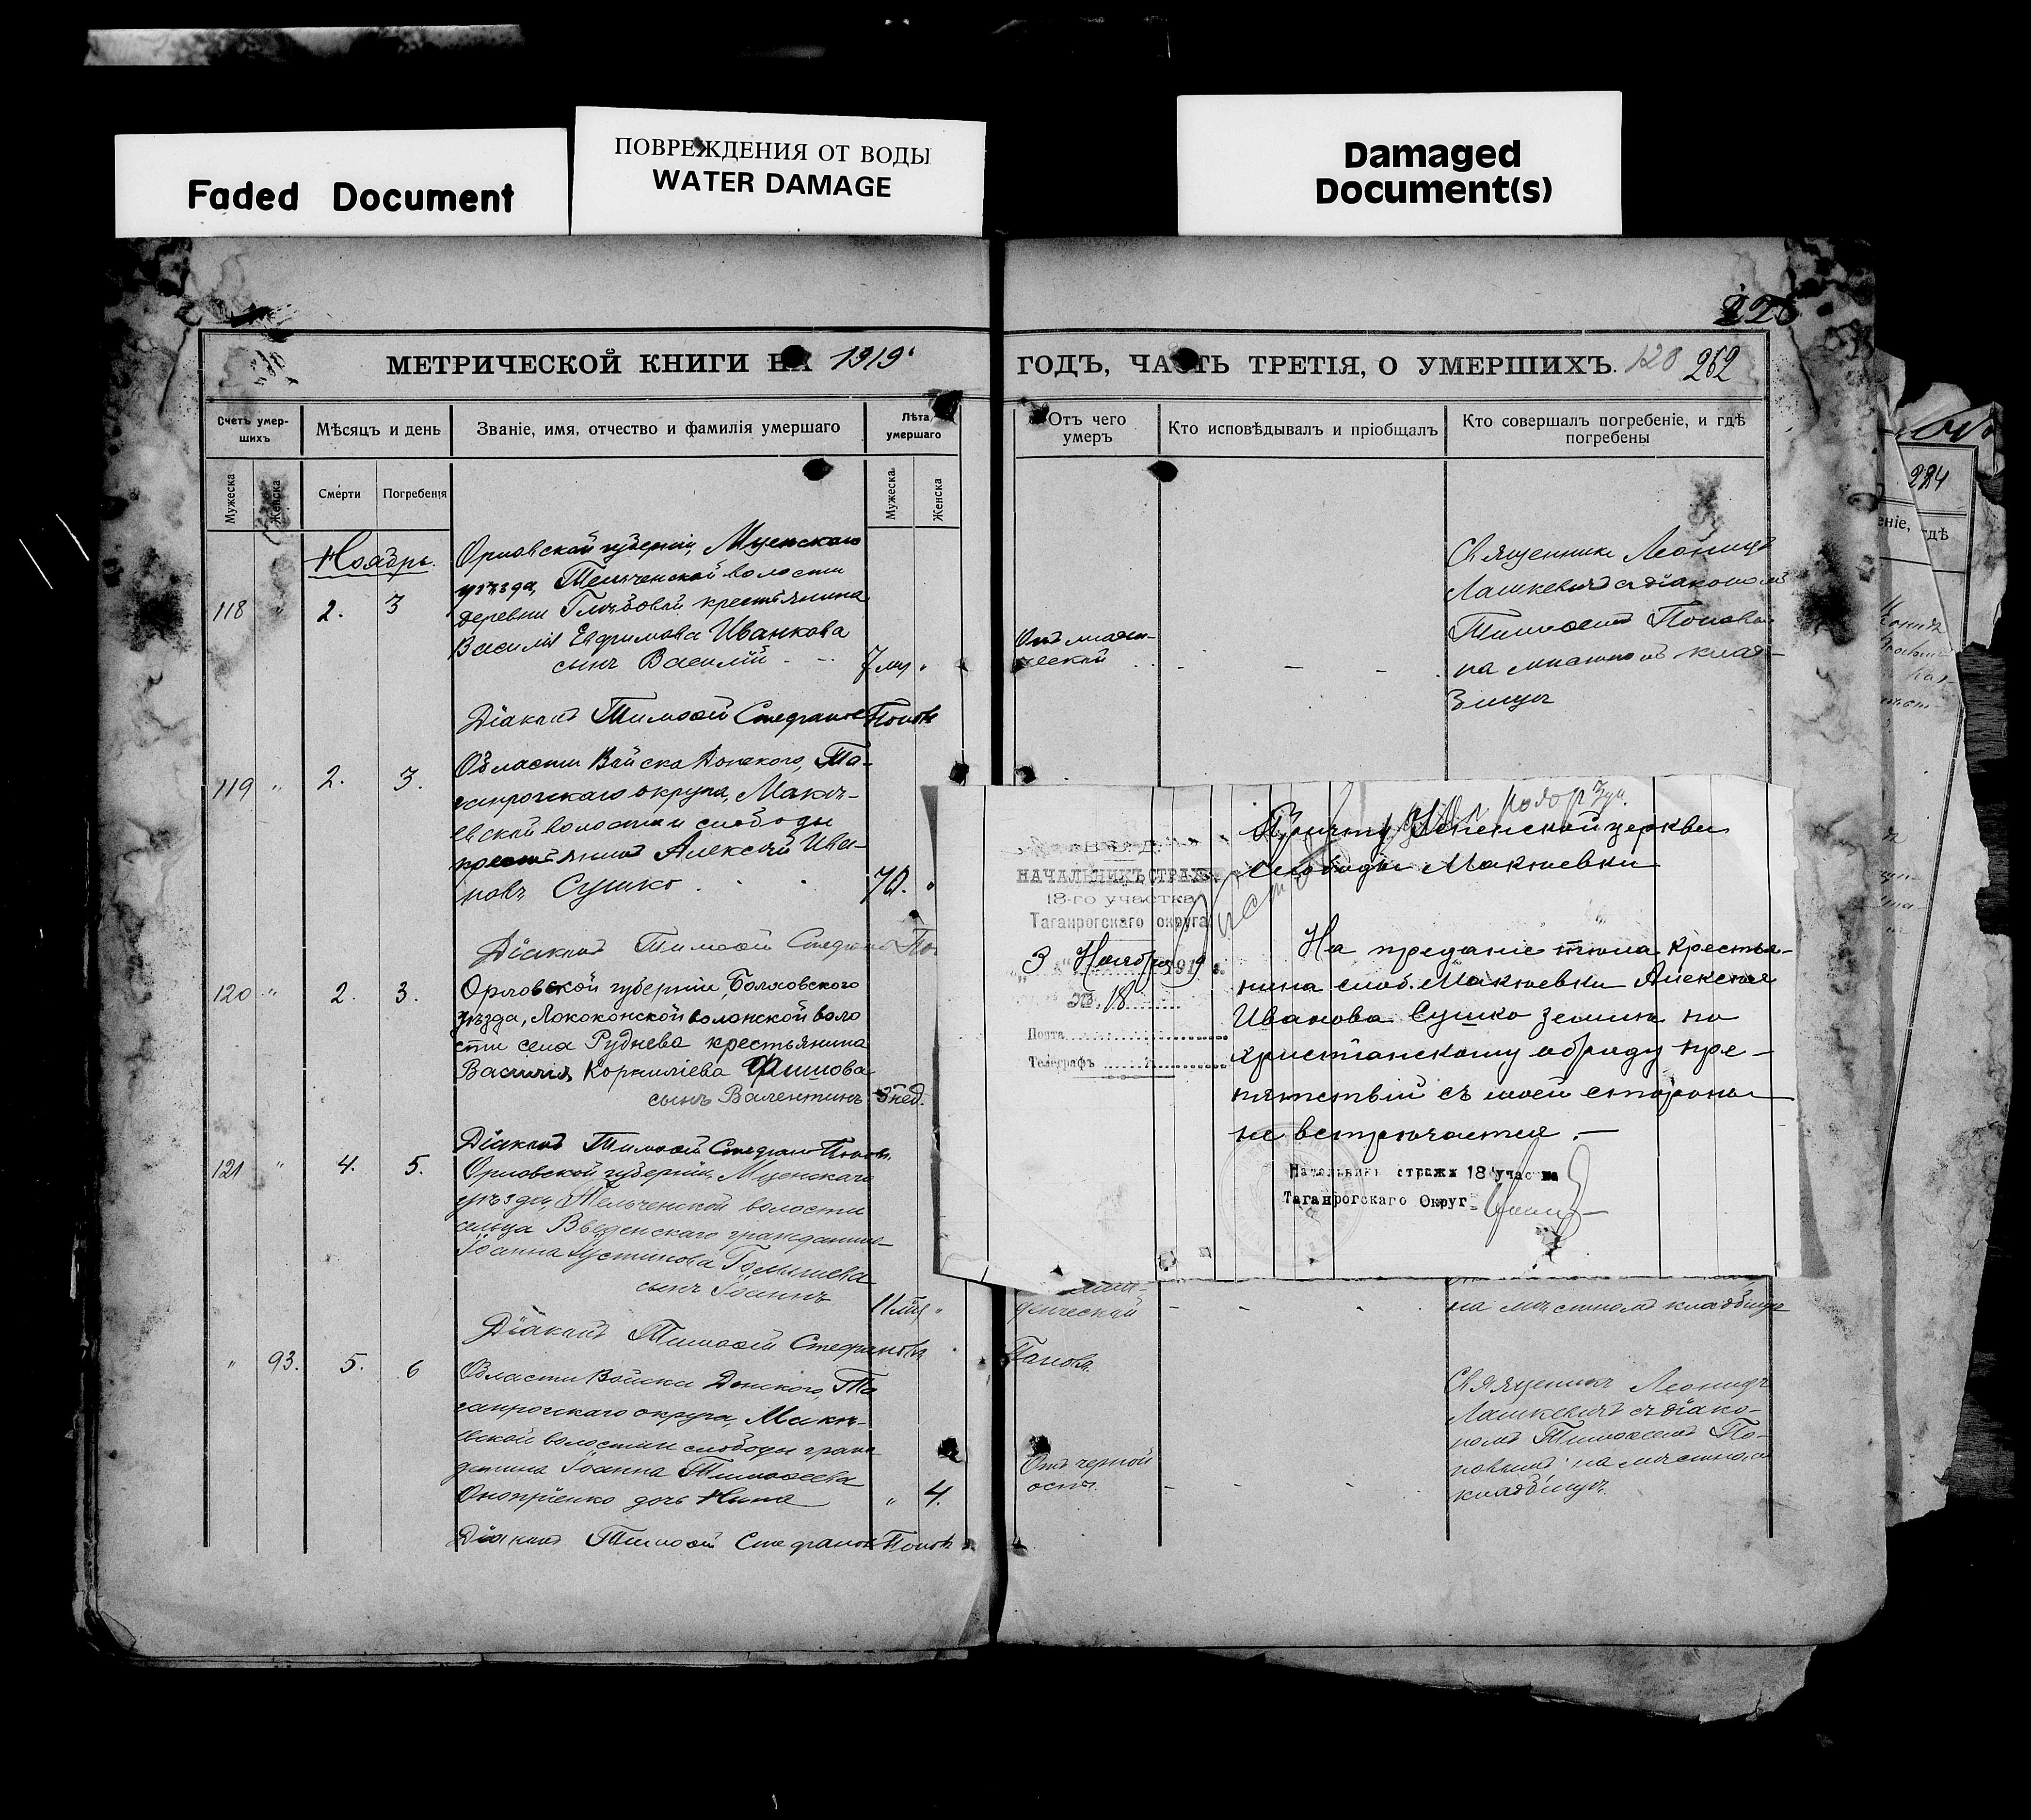 Faded Document
ПОВРЕЖДЕНИЯ ОТ ВОДЫ
WATER DAMAGE
Damaged
Document(s)
МЕТРИЧЕСКОЙ КНИГИ НА 1919
Счетъ умер-
шихъ
Мѣсяцъ и день
Званіе, имя, отчество и фамилія умершаго
Лѣта
умершаго
Мужеска
Женска
Смерти
Погребенія
Мужеска
Женска
Ноябрь.
118 " 2. 3
Орловской губерніи, Мценскаго
уѣзда, Тельченской волости
деревни крестьянина
Василія Ефримова Иванкова
сынъ Василій 7 мѣс "
Діаконъ Тимоѳей Стефановъ Поповъ
119 " 2. 3.
Области Войска Донского, Та-
ганрогскаго округа, Макѣ-
евской волости и слободы
крестьянинъ Алексѣй Ива-
новъ Сушко 70. "
Діаконъ Тимоѳей Стефановъ По
120 " 2. 3.
Орловской губерніи, Болховского
уѣзда, волонской воло
сти села Руднева крестьянина
Василія Корниліева
сынъ Валентинъ 3 нед.
Діаконъ Тимоѳей Стефановъ Поповъ
121 " 4. 5.
Орловской губерніи, Мценскаго
уѣзда, Тельченской волости
сельца Введенскаго гражданина
Іоанна Устинова Голышева
сынъ Іоаннъ 11 мѣс "
Діаконъ Тимоѳей Стефановъ
" 93. 5. 6
Области Войска Донского, Та
ганрогскаго округа, Макѣ-
евской волости и слободы граж
данина Іоанна Тимоѳеева
Оноприенко дочь Нина " 4.
Діаконъ Тимоѳей Стефановъ Поповъ
ГОДЪ, ЧАСТЬ ТРЕТІЯ, О УМЕРШИХЪ. 128 262
Отъ чего
умеръ
Кто исповѣдывалъ и пріобщалъ
Кто совершалъ погребеніе, и гдѣ
погребены
Отъ младен-
ческой
Священникъ Леонидъ
Лашкевичъ съ діакономъ
Тимоѳеемъ Поповымъ
на мѣстномъ клад-
бищѣ
НАЧАЛЬНИКЪ СТРАЖИ
18-го участка
Таганрогскаго округа
3 Ноября 1919 г.
№ 18
Почта
Телеграфъ
Причту Успенской церкви
слободы Макѣевки
На преданіе тѣла крестья-
нина слоб. Макѣевки Алексѣя
Иванова Сушко землѣ по
христіанскому обряду пре-
пятствій съ моей стороны
не встрѣчается.—
Начальникъ стражи 18 участка
Таганрогскаго Округа
денческой
на мѣстномъ кладбищѣ
Поповъ.
Отъ черной
оспы.
Священникъ Леонидъ
Лашкевичъ съ діако-
номъ Тимоѳеемъ По-
повымъ на мѣстномъ
кладбищѣ
284
еніе, гдѣ